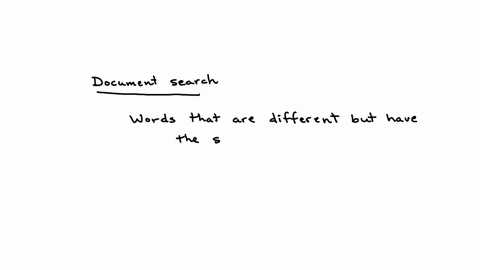 Document search
Words that are different but have
the s